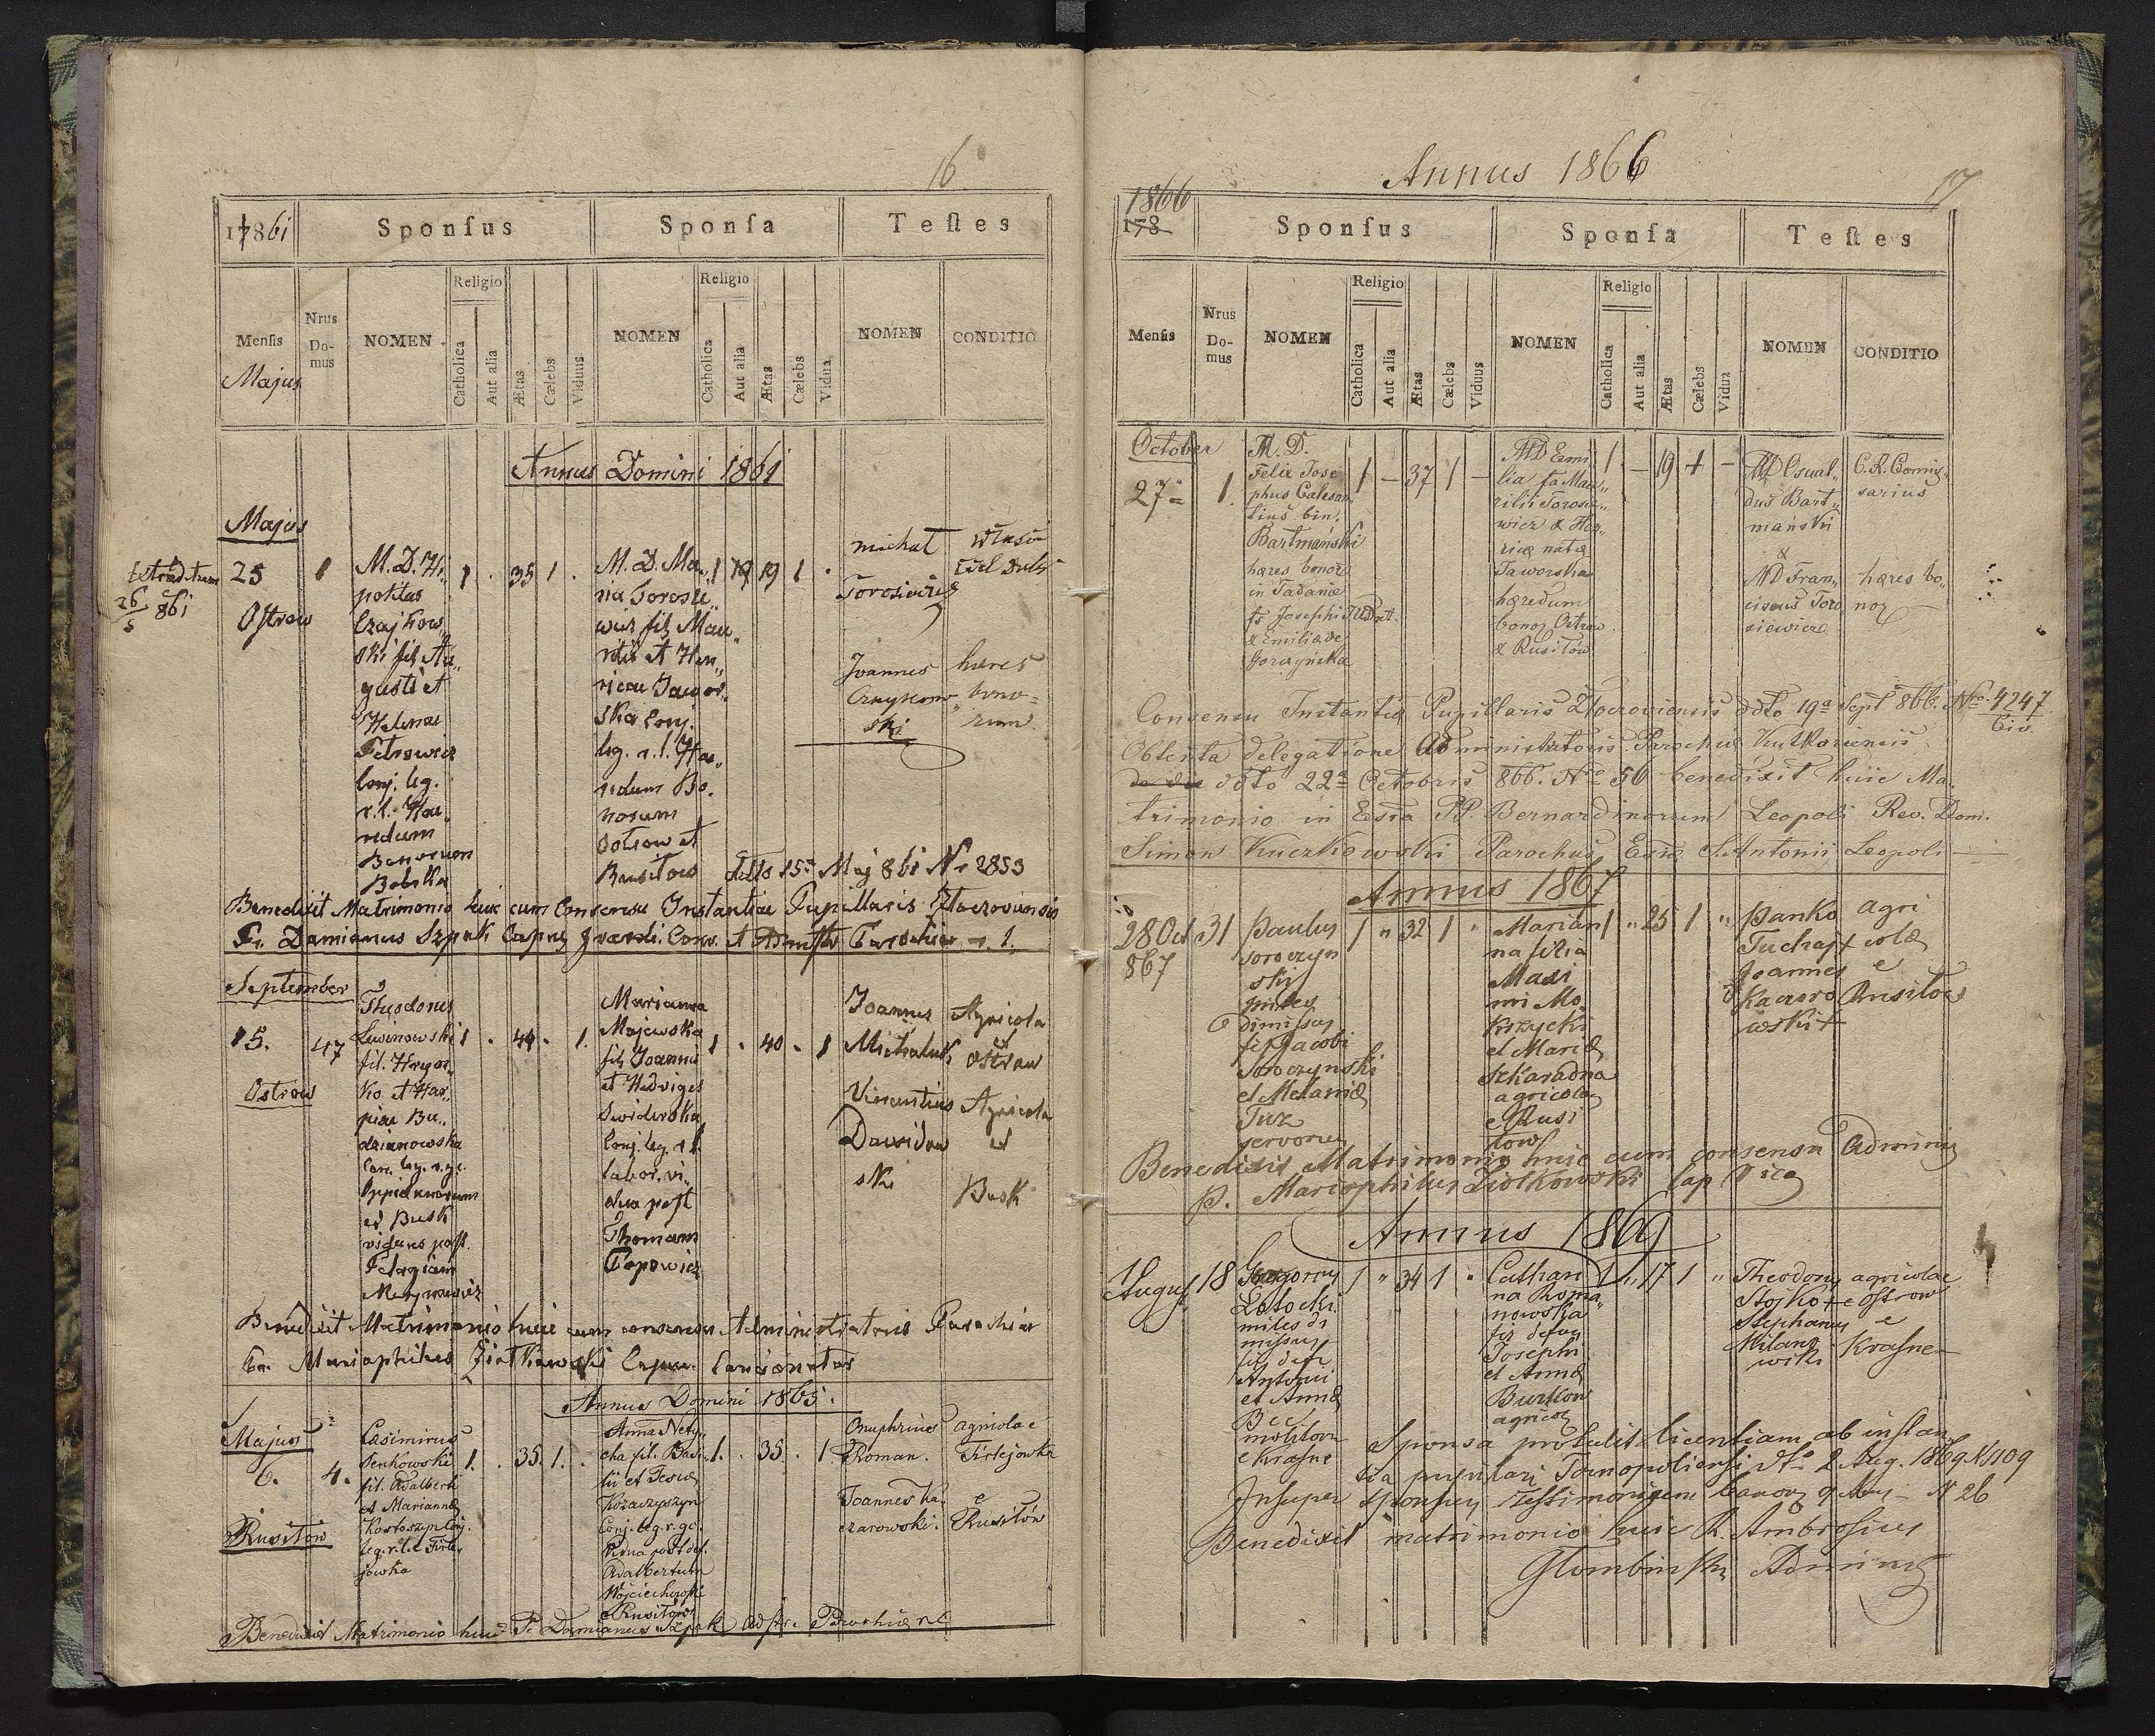 16
17861
Sponsus
Sponsa
Testes
Mensis
Majus
Nrus Do-mus
NOMEN
Religio
Catholica
Aut alia
Ætas
Cælebs
Viduus
NOMEN
Religio
Catholica
Aut alia
Ætas
Cælebs
Vidua
NOMEN
CONDITIO
Annus Domini 1861
Majus
25
Ostrow
1
M. D. Hi„
politus
Czajkow„
ski fil Au„
gusti et
Helenae
Petrowicz
Conj. leg.
r. l. Hae„
redum
Bonorum
Bobrka
1 . 35 1 .
M. D. Ma„
ria Torosie„
wicz fil Mau„
ritii et Hen„
ricae Jawor„
ska Conj.
leg. r. l. Hae„
redum Bo„
norum
Ostrow et
Rusitow
1 19 19 1 .
michał
Torosiewicz
Joannes
Czaykow„
ski
haeres
bono=
rum
ddto 15ª Maj 861 Nr 2853
Benedixit Matrimonio huic cum Consensu Instantiae Pupillaris Złoczoviensis
Fr. Damianus Szpak Capnus Guardi. Conv. et Admstr Parochiae r. l.
September
15.
Ostrow
47
Theodorus
Lewinowski
fil. Hrycz„
ko et Har„
piae Bu„
dzianowska
Con. leg. r. gr.
Oppidanorum
ex Busk
viduus post.
Pelagiam
1 . 44 . 1.
Marianna
Majewska
fil Joannis
et Hedviges
Swiderska
Conj. leg. r l.
labor. vi„
dua post
Thomam
Popowicz
1 . 40 . 1
Joannes
Michaluk
Vincentius
Dawidow
ski
Agricola
e
Ostrow
Agricola
ex
Busk
Benedixit Matrimonio huic cum consensu Administratoris Parochiae
Fr. Mariophilus Ziołkowski Capuc. Concionator
Annus Domini 1865.
Majus
6.
Rusitów
4.
Casimirus
Senkowski
fil. Adalberti
et Mariannæ
Kostoszyn Conj.
leg. r. l. e Firle„
jowka
1. . 35. 1. .
Anna Nety„
cha fil. Basi„
lii et Teclæ
Kozaczyszyn
Conj. leg. r. gr.
Vidua post def.
Adalbertum
Wojciechowski
e Rusitów
1. . 35. . 1.
Onuphrius
Roman.
Joannes Ka„
czarowski.
agricolae
Firlejówka
e
Rusitów
Benedixit Matrimonio huic P. Damianus Szpak Adstr. Parochiæ r. l.
Annus 1866
17
1866
178
Sponsus
Sponsa
Testes
Mensis
Nrus Do-mus
NOMEN
Religio
Catholica
Aut alia
Ætas
Cælebs
Viduus
NOMEN
Religio
Catholica
Aut alia
Ætas
Cælebs
Vidua
NOMEN
CONDITIO
October
27ª
1.
M. D.
Felix Jose
phus Calasan„
tius bin.
Bartmański
hæres bonor
in Tadanie
fs Josephi
& Emiliæ de
Gorczyńska
1 – 37 1 –
MD Emi„
lia fa Mau„
ritii Torosie„
wicz & Hen„
ricæ natæ
Jaworska
hæredum
bonor Ostrow
& Rusitow
1 – 19 + –
MD Osual„
dus Bart„
mański
&
MD Fran„
ciscus Toro
siewicz
C. R. Comis„
sarius
hæres bo„
nor
Consensu Instantiæ Pupillaris Złoczoviensis ddto 19ª Sept 866. Nro 4247
Civ.
Obtenta delegatione Administratoris Parochiæ Kutkoriensis
de die ddto 22ª Octobris 866. No 50 benedixit huic Ma„
trimonio in Ecsia PP. Bernardinorum Leopoli Rev. Dom.
Simon Kuczkowski Parochus Ecsiæ S. Antonii Leopoli
Annus 1867
28 Oct
867
31
Paulus
Soroczyn
ski
miles
dimissus
fil Jacobi
Soroczynski
et Melaniæ
Tuz
1 „ 32 1 „
Marian
na filia
Maxi
mi Mo
krzycki
et Mariæ
Szkaradna
agricolæ
e Rusi
tow
1 „ 25 1 „
Panko
Tuchaj +
Joannes
Kaczoro
wski +
agri
colæ
e
Rusitow
Benedixit Matrimonio huic cum consensu Adminis
P. Mariophilus Ziołkowski Cap
Annus 1869
August
18
Gregorius
Łotocki
miles di
missus
fil def
Antonii
et Annæ
e Krasne
1 „ 34 1 „
Cathari
na Roma„
nowska
fil def
Josephi
et Annæ
Burtkow
agricol
1 „ 17 1 „
Theodorus
Stojko +
Stephanus
Milano
wicz
agricolae
e Ostrow
e
Krasne
Sponsa protulit licentiam ab instan
tia pupillari Tarnopoliensi dto 2 Aug. 1869 N 5109
Insuper sponsus Testimonium 9 Aug N 26
Benedixit matrimonio huic R. Ambrosius
Glombinski Admins